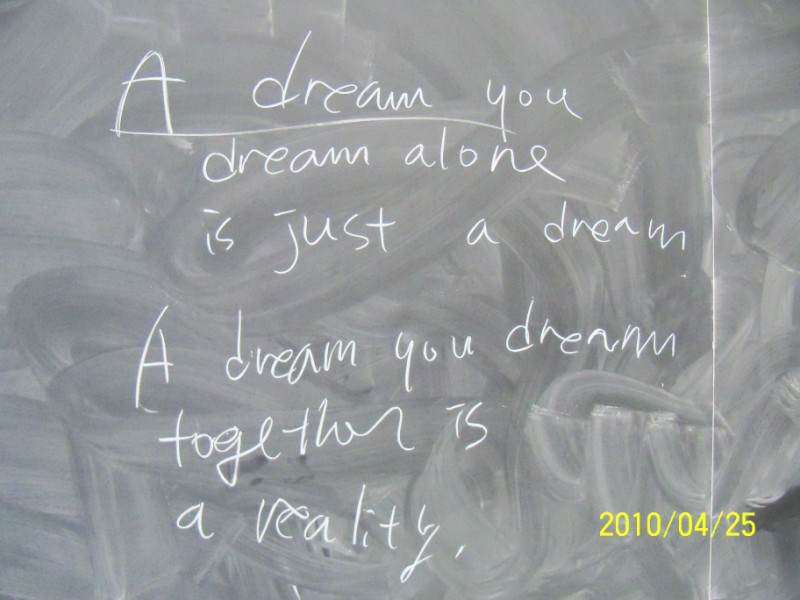 A dream you
dream alone
is just a dream
A dream you dream
together is
a reality.
2010/04/25